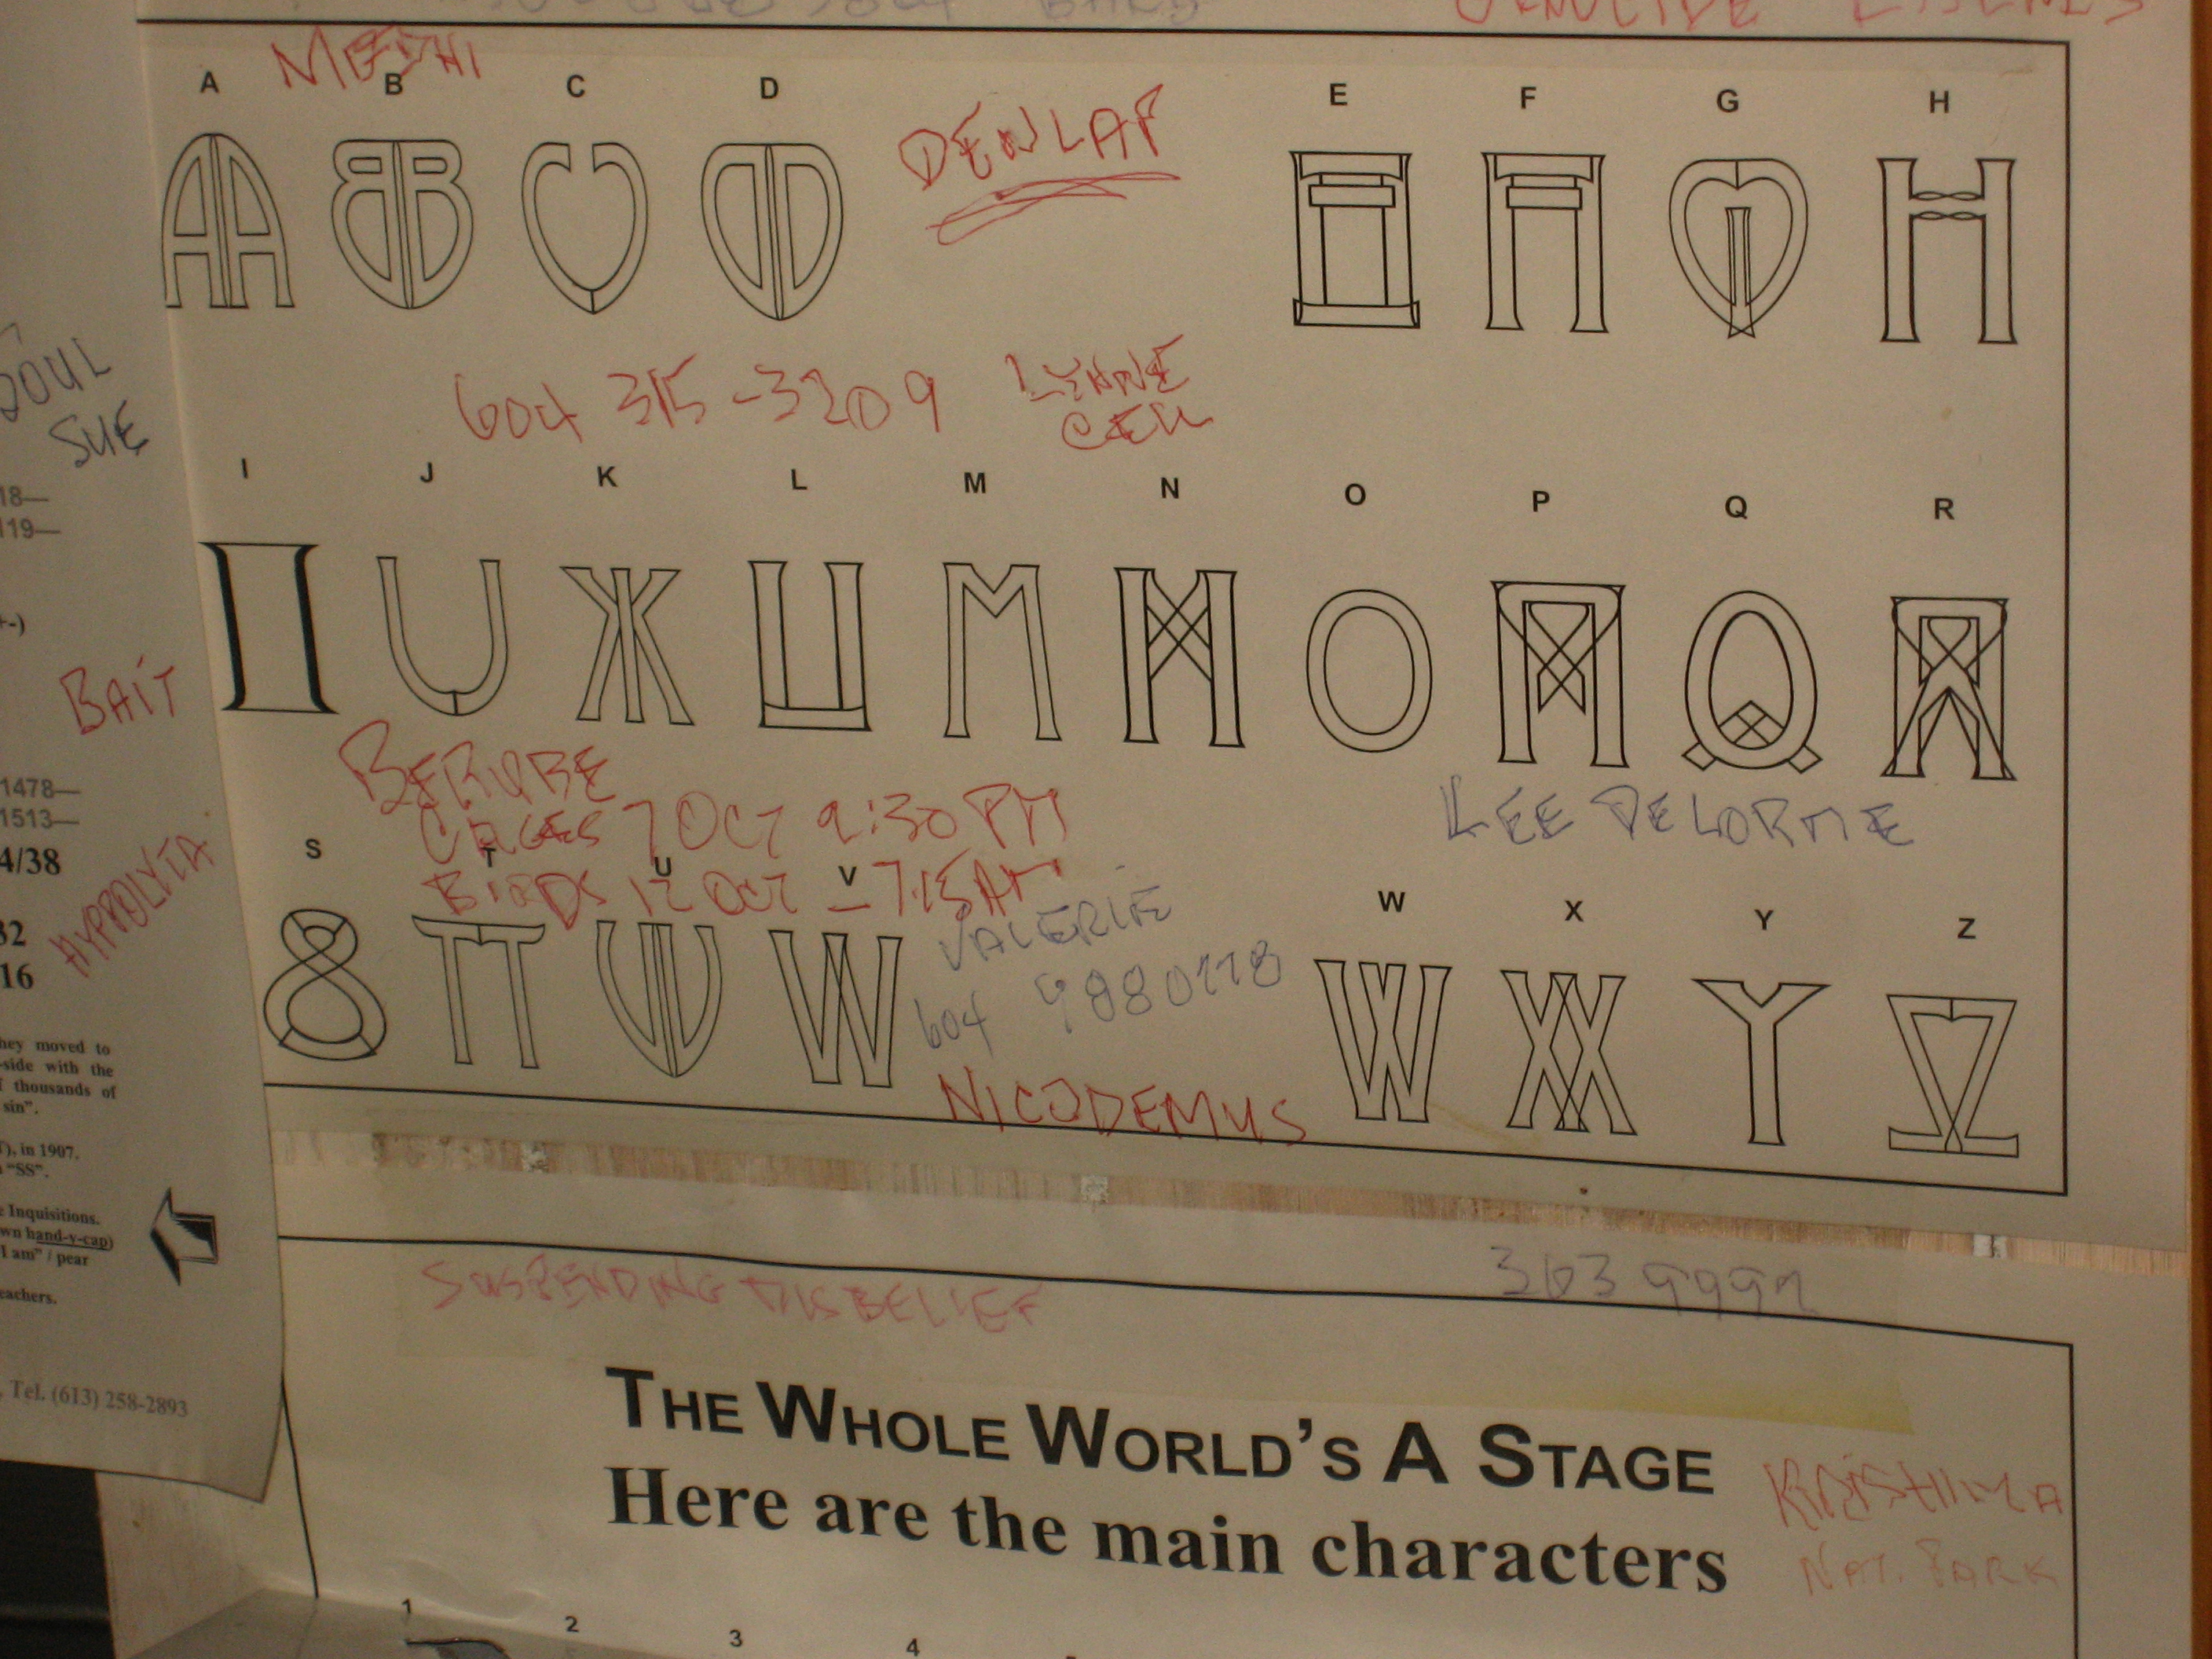 A B C D E F G H
DENLAP
604 315-3209 LYNNE
CELL
SOUL
SUE
I J K L M N O P Q R
18—
119—
+-)
BAIT
BERUBE
CAGES 7 OCT 9:30 PM
BIRDS 12 OCT – 7:15 AM
LEE DELORME
1478—
1513—
4/38
HYPPOLYTA
S T U V W X Y Z
VALERIE
604
32
16
NICODEMUS
hey moved to
-side with the
f thousands of
sin”.
), in 1907.
“SS”.
Inquisitions.
wn hand-y-cap)
I am” / pear
eachers.
Tel. (613) 258-2893
SUSPENDING DISBELIEF
363 9992
THE WHOLE WORLD’S A STAGE
Here are the main characters
NAT. PARK
1 2 3 4